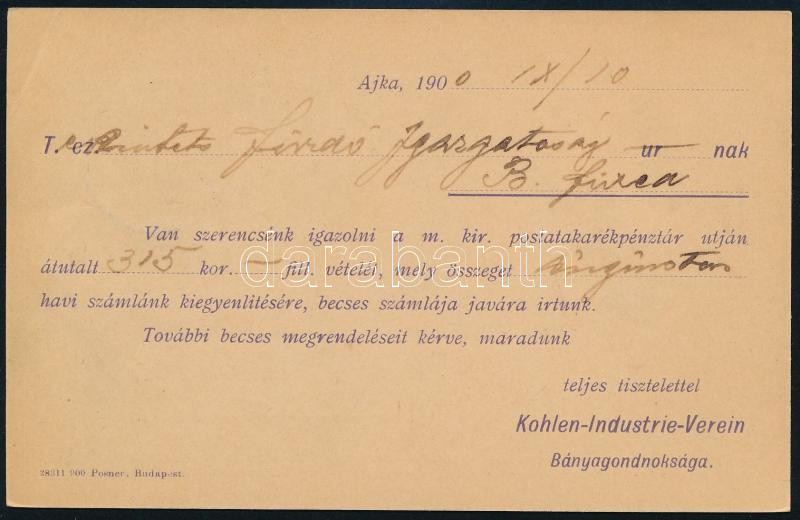 Ajka, 1900 IX/10
T. cz. fürdő Igazgatóság ur nak
B. füred
Van szerencsénk igazolni a m. kir. postatakarékpénztár utján
átutalt 315 kor. — fill. vételét, mely összeget
havi számlánk kiegyenlitésére, becses számlája javára irtunk.
További becses megrendeléseit kérve, maradunk
teljes tisztelettel
Kohlen-Industrie-Verein
Bányagondnoksága.
28311 900 Posner, Budapest.
darabanth